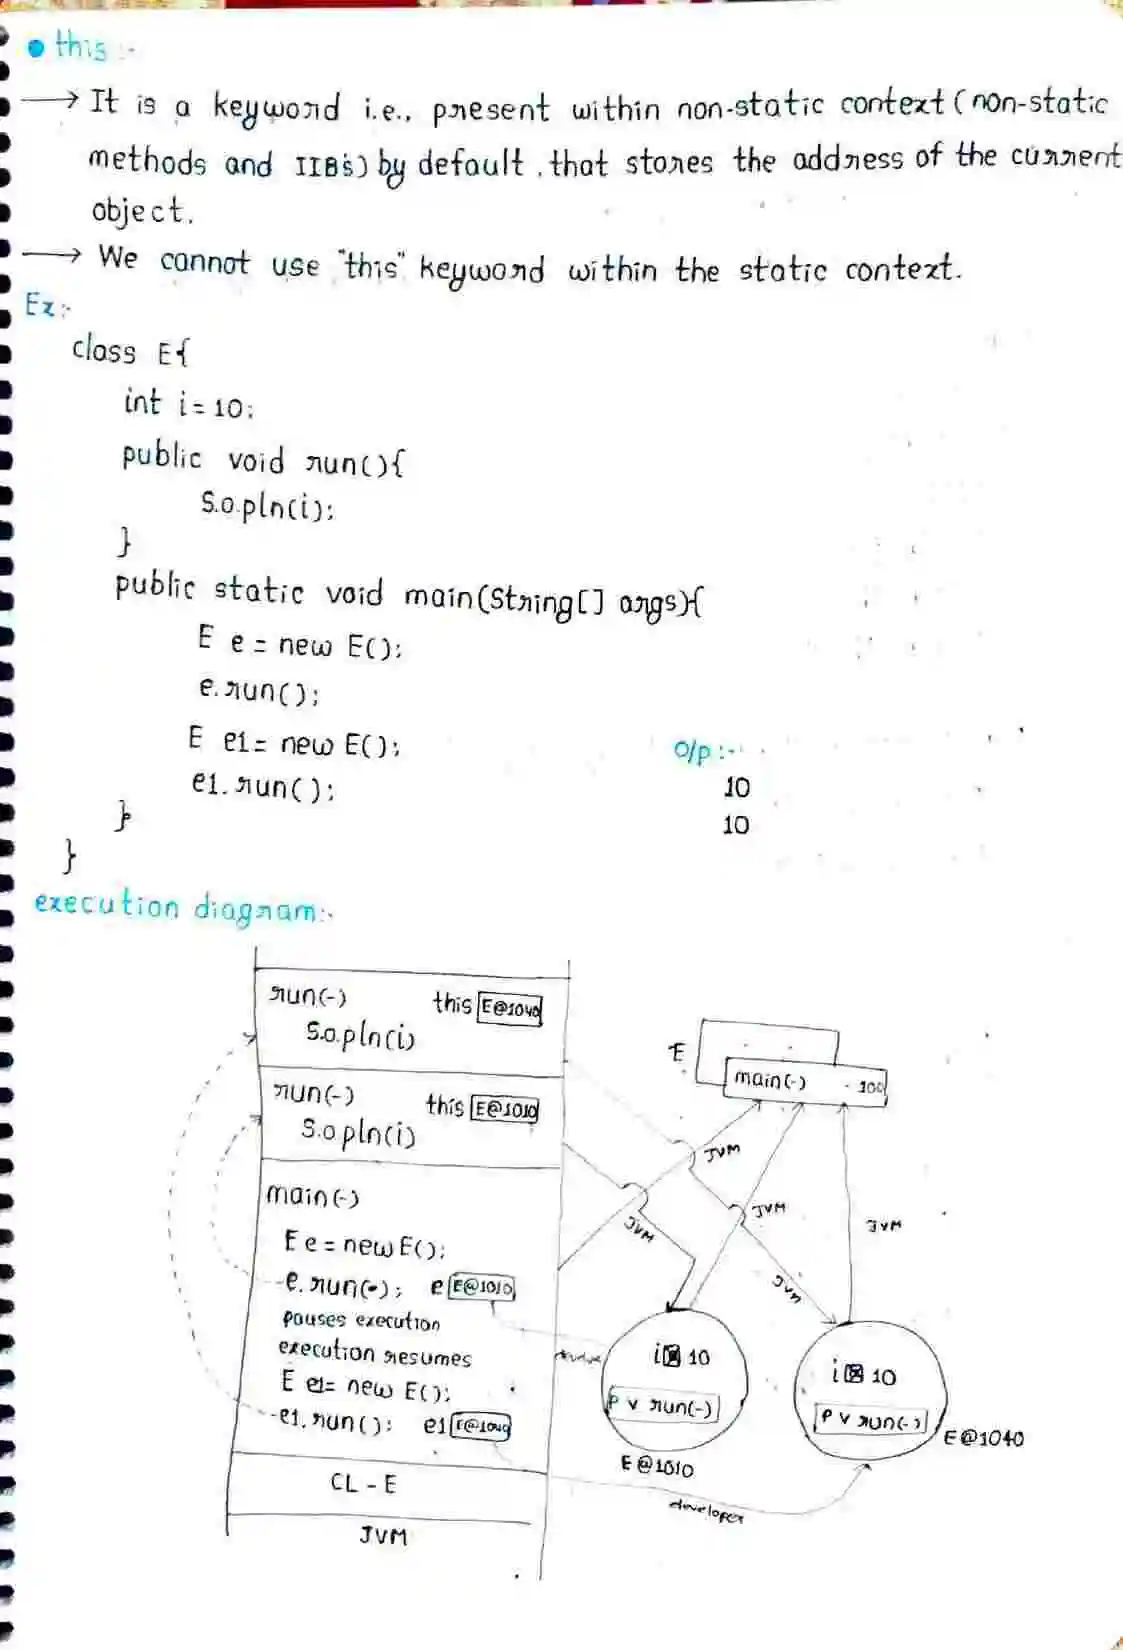 • this :-
→ It is a keyword i.e., present within non-static context (non-static
methods and IIB's) by default, that stores the address of the current
object.
→ We cannot use "this" keyword within the static context.
Ex:-
class E{
int i = 10;
public void run(){
S.o.pln(i);
}
public static void main(String[] args){
E e = new E();
e.run();
E e1 = new E();
e1.run();
}
}
O/p :-
10
10
execution diagram:-
run(-) this E@1040
S.o.pln(i)
run(-) this E@1010
S.o pln(i)
main(-)
E e = new E();
e.run(-); e E@1010
pauses execution
execution resumes
E e1= new E();
e1.run(); e1 E@1040
CL - E
JVM
E
main(-) - 100
JVM
JVM
JVM
JVM
JVM
i 10
P v run(-)
E@1010
i 10
P v run(-)
E@1040
developer